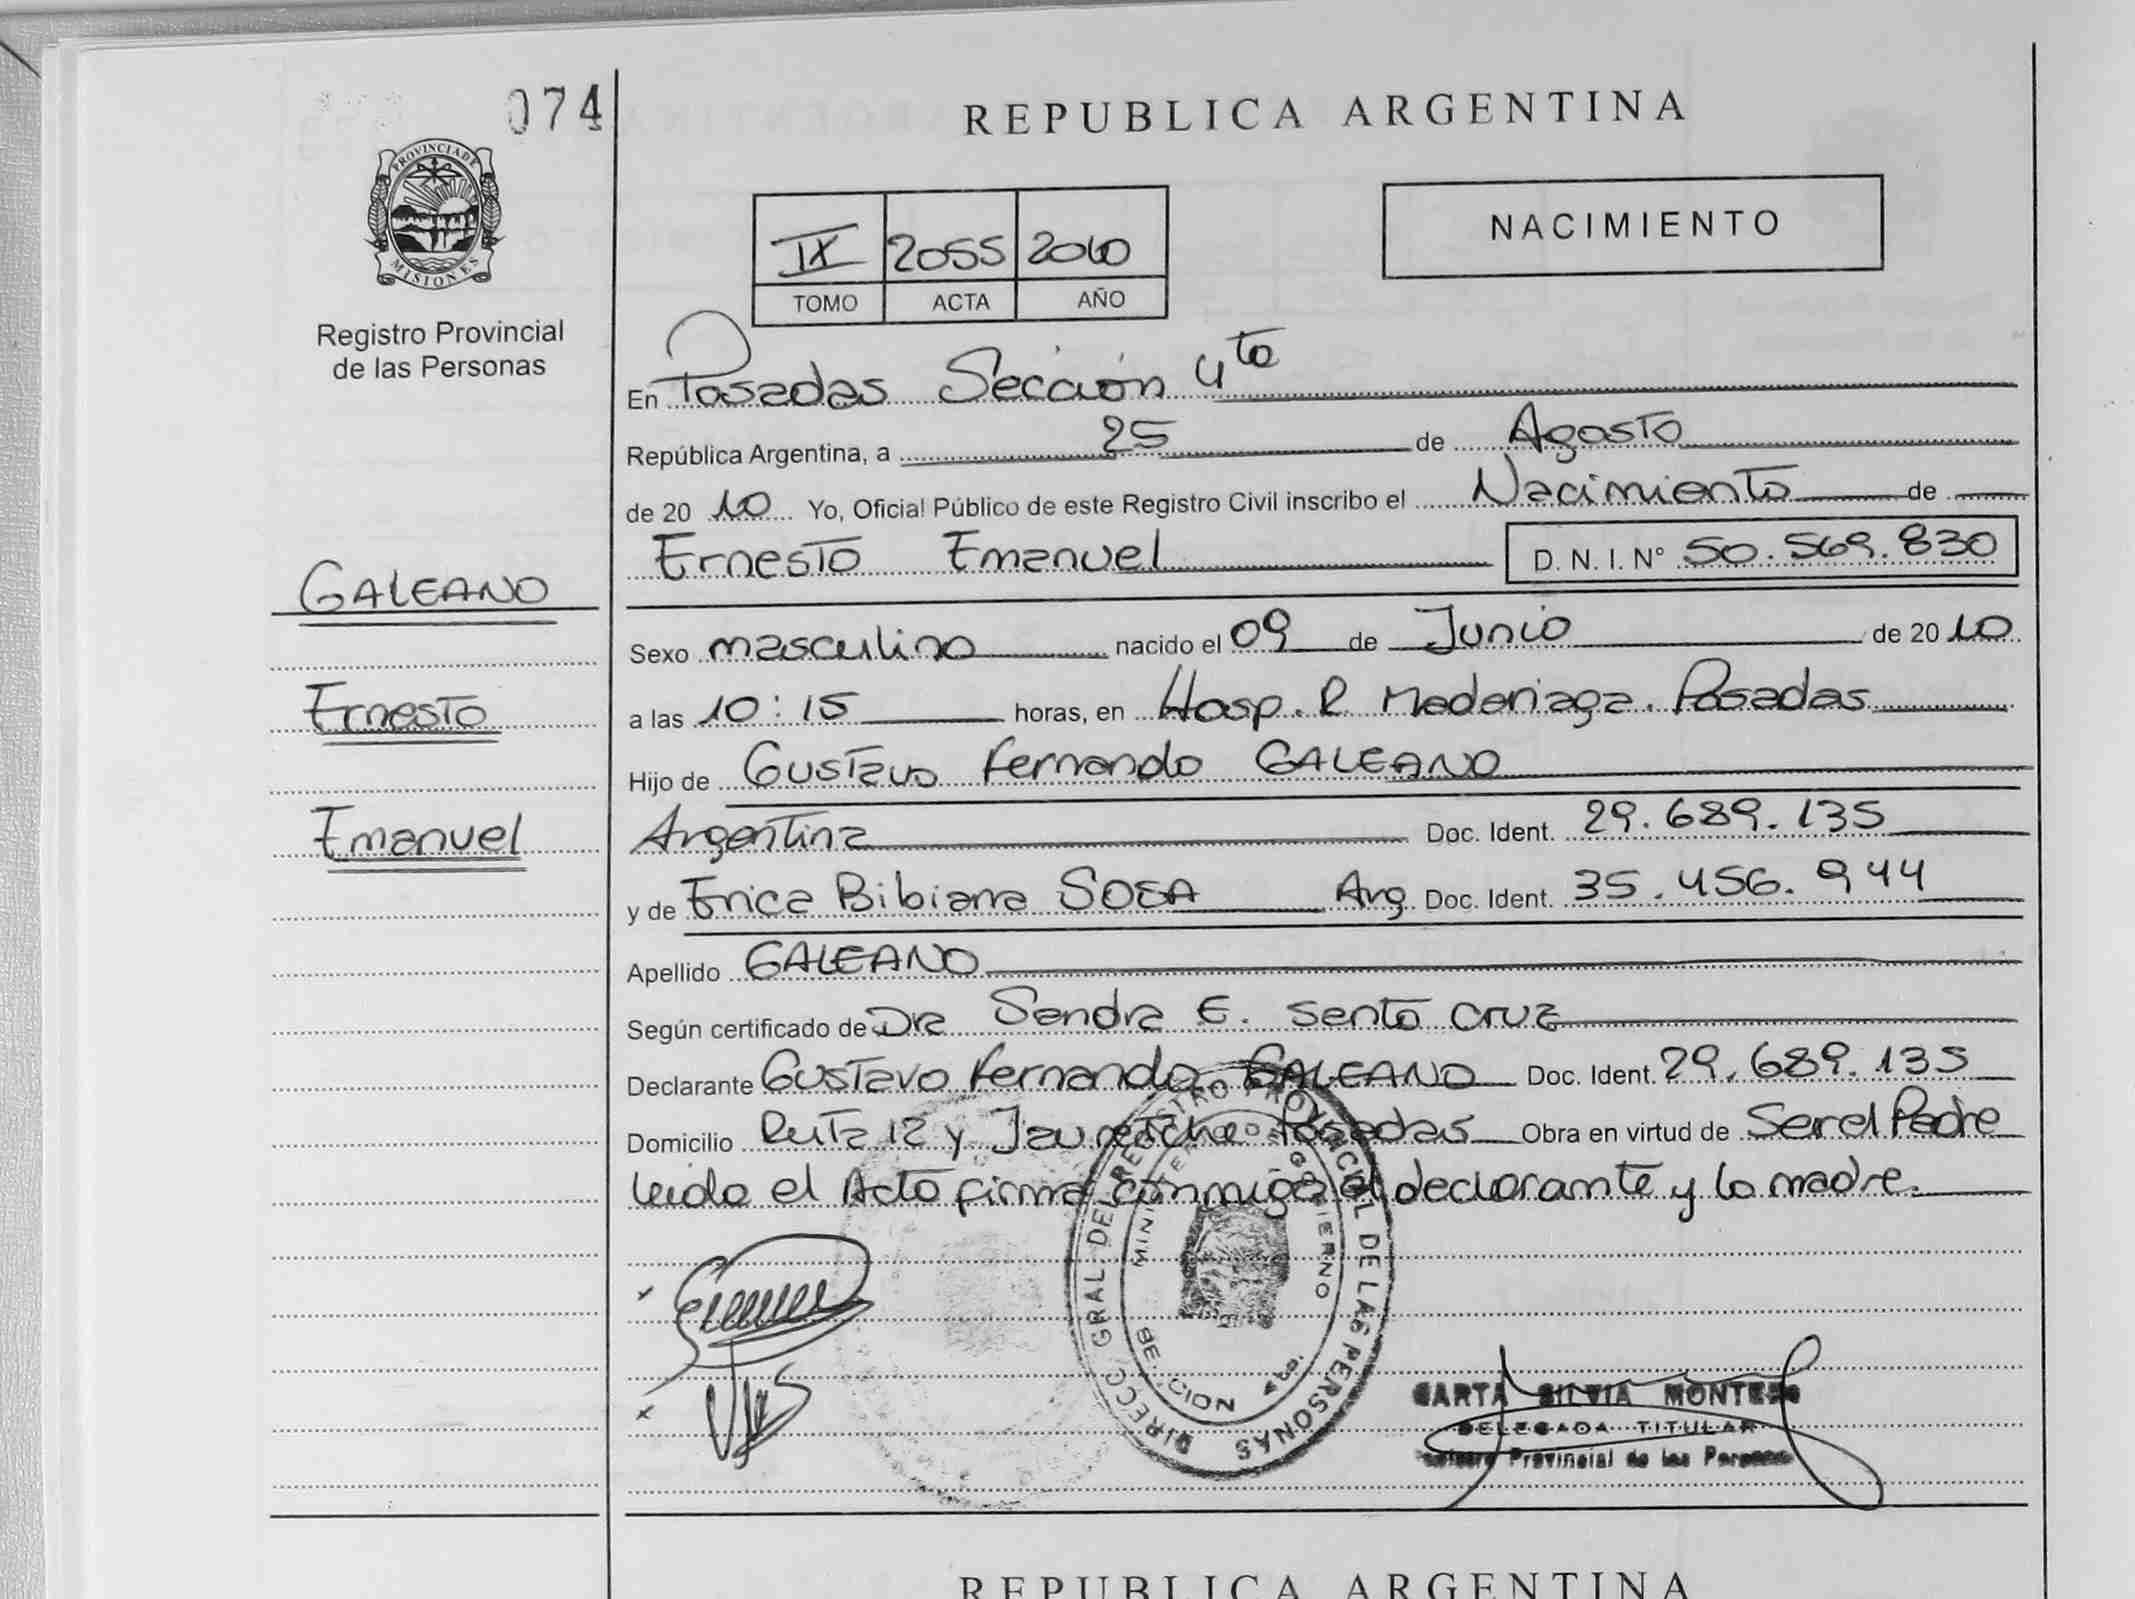 074
REPUBLICA ARGENTINA
PROVINCIA DE MISIONES
Registro Provincial
de las Personas
IX 2055 2010
TOMO ACTA AÑO
NACIMIENTO
En Posadas Sección 4ta
República Argentina, a 25 de Agosto
de 2010 Yo, Oficial Público de este Registro Civil inscribo el Nacimiento de
Ernesto Emanuel D. N. I. N° 50.569.830
GALEANO
Ernesto
Emanuel
Sexo masculino nacido el 09 de Junio de 2010
a las 10:15 horas, en Hosp. R Madariaga. Posadas
Hijo de Gustavo Fernando GALEANO
Argentina Doc. Ident. 29.689.135
y de Erica Bibiana SOSA Arg Doc. Ident. 35.456.944
Apellido GALEANO
Según certificado de Dra Sandra E. Santa Cruz
Declarante Gustavo Fernando GALEANO Doc. Ident. 29.689.135
Domicilio Ruta 12 y Jauretche Posadas Obra en virtud de Ser el Padre
leido el Acto firma conmigo el declarante y la madre.
DIRECC GRAL DEL REGISTRO PROVINCIAL DE LAS PERSONAS
MINISTERIO DE GOBIERNO
SILVIA MONTERO
DELEGADA TITULAR
Provincial de las Personas
REPUBLICA ARGENTINA